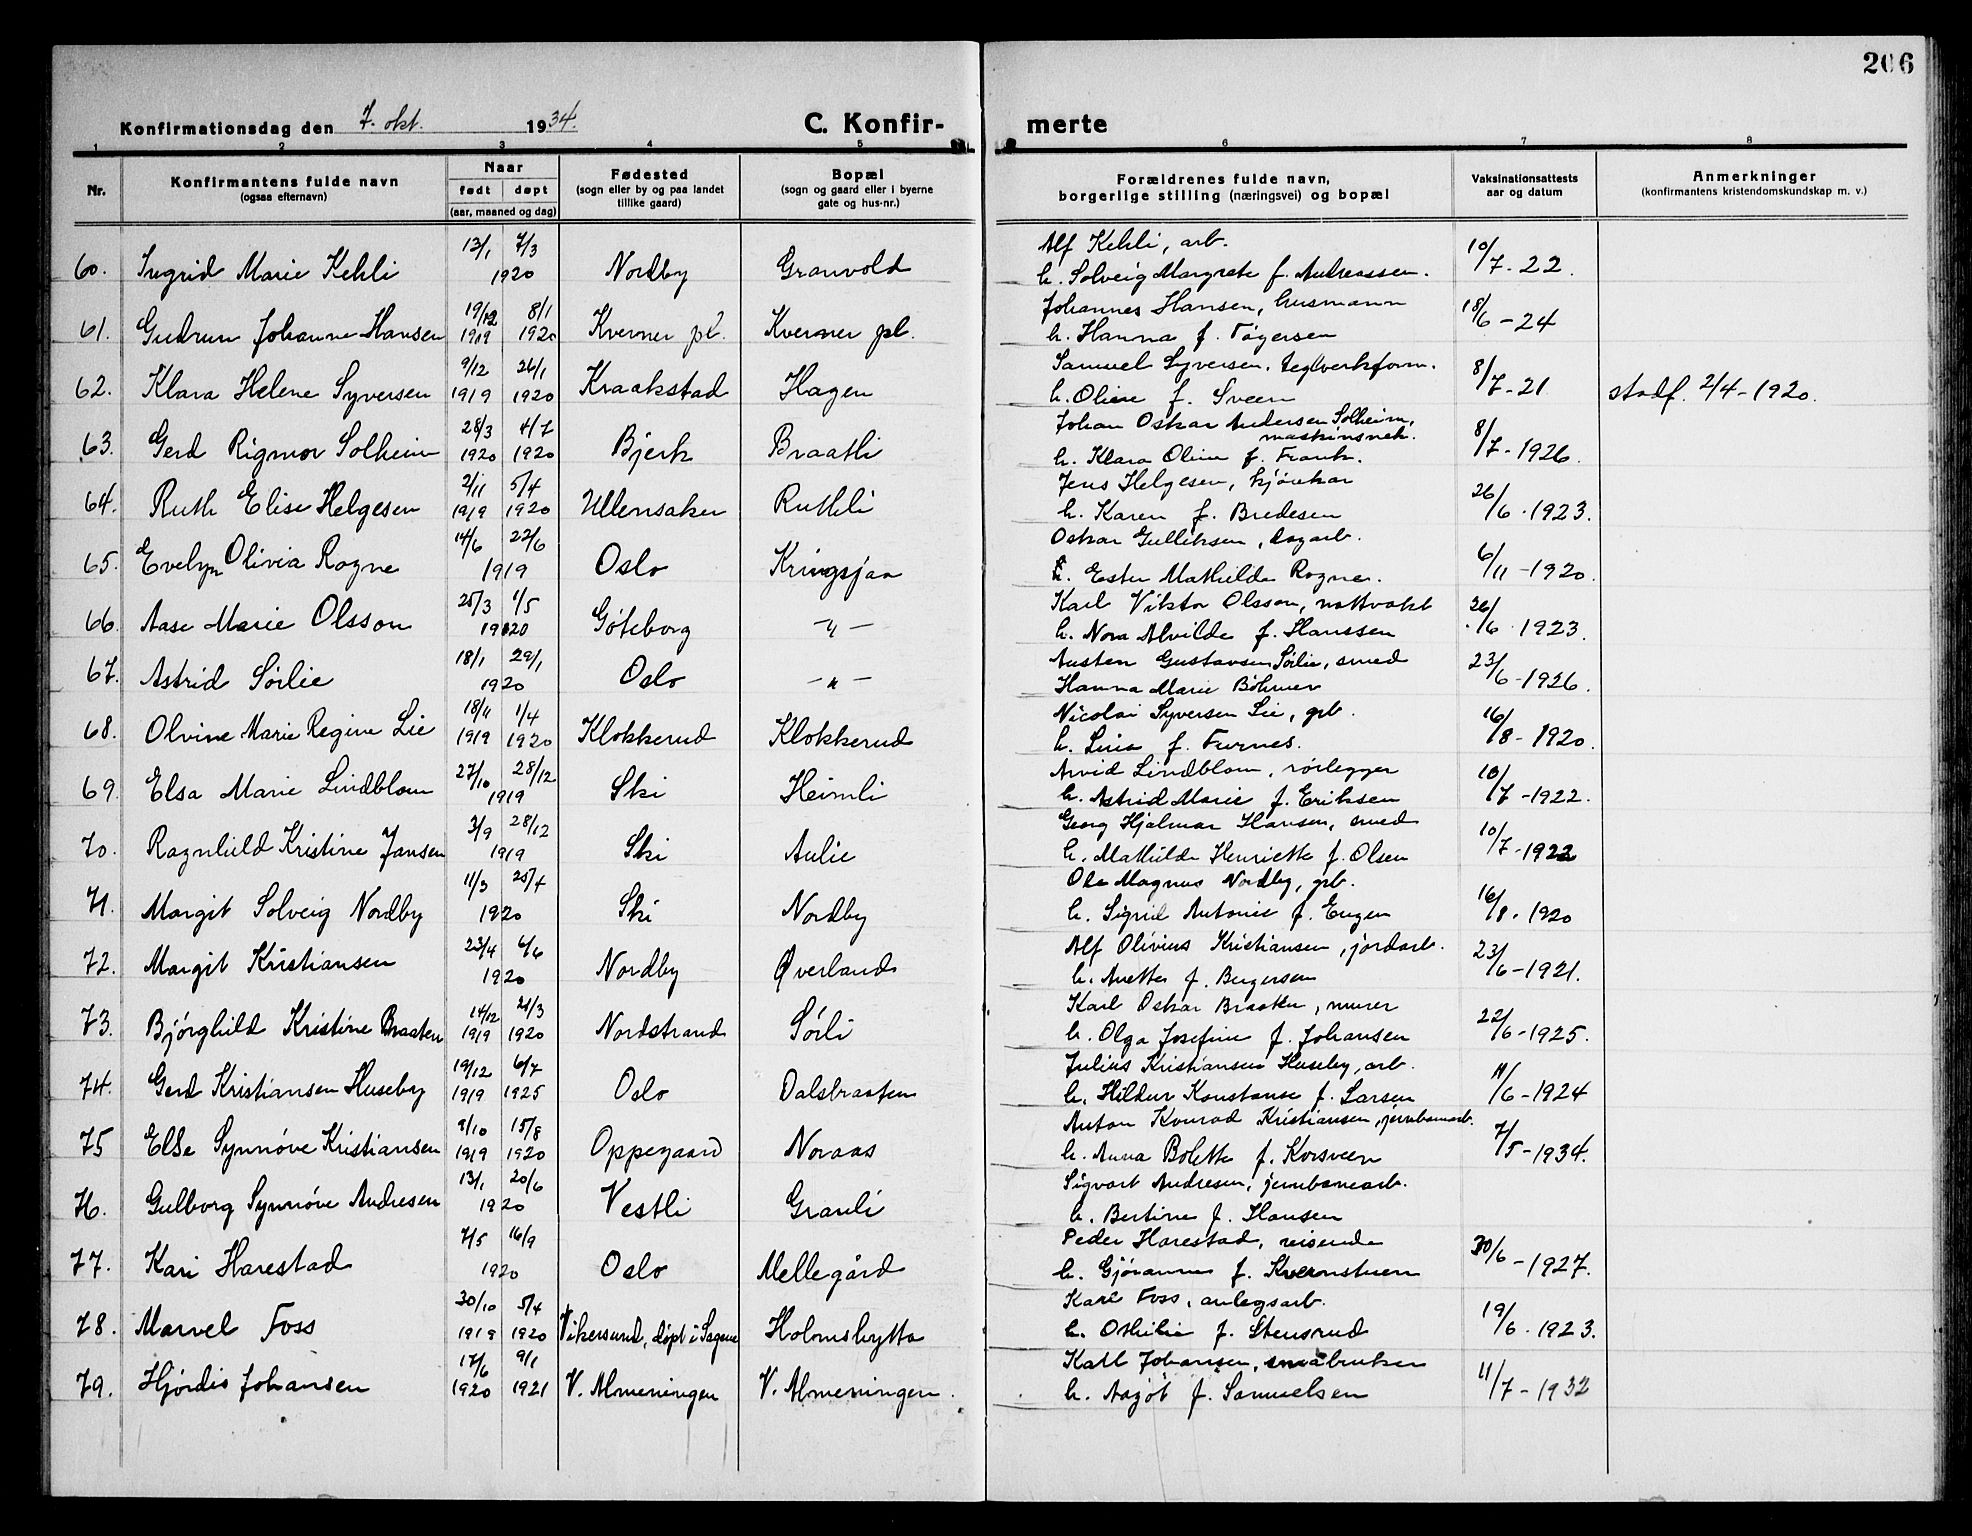 206
Konfirmationsdag den 7. okt. 1934. C. Konfir- merte
1 2 3 4 5 6 7 8
Nr. Konfirmantens fulde navn (ogsaa efternavn) Naar født døpt (aar, maaned og dag) Fødested (sogn eller by og paa landet tillike gaard) Bopæl (sogn og gaard eller i byerne gate og hus-nr.) Forældrenes fulde navn, borgerlige stilling (næringsvei) og bopæl Vaksinationsattests aar og datum Anmerkninger (konfirmantens kristendomskundskap m. v.)
13/1 7/3 Alf Kehli, arb.
60. Ingrid Marie Kehli 1920 Nordby Granvold h. Solveig Margrete f. Andreassen. 10/7-22.
19/12 8/1 Johannes Hansen, husmann
61. Gudrun Johanne Hansen 1919 1920 Kverner pl. Kverner pl. h. Hanna f. Tøgersen 18/6-24
9/12 26/1 Samuel Syversen, teglverksform.
62. Klara Helene Syversen 1919 1920 Kraakstad Hagen h. Oline f. Sveen 8/7-21 stadf. 2/4-1920.
28/3 4/7 Johan Oskar Andersen Solheim, maskinsnek.
63. Gerd Rigmor Solheim 1920 1920 Bjerk Braatli h. Klara Oline f. Frank. 8/7-1926.
2/11 5/4 Jens Helgesen, kjørekar
64. Ruth Elise Helgesen 1919 1920 Ullensaker Ruthli h. Karen f. Bredesen 26/6-1923.
14/6 22/6 Oskar Gulliksen, dagarb.
65. Evelyn Olivia Rogne 1919 Oslo Kringsjaa Ester Mathilde Rogne. 6/11-1920.
25/3 1/5 Karl Viktor Olsson, nattvakt
66. Aase Marie Olsson 1920 Gøteborg -„- h. Nora Alvilde f. Hanssen 26/6 1923.
18/1 29/1 Austen Gustavsen Sørlie, smed
67. Astrid Sørlie 1920 Oslo -„- Hanna Marie Bøhmer 23/6-1926.
18/11 1/4 Nicolai Syversen Lie, grb.
68. Olvine Marie Regine Lie 1919 1920 Klokkerud Klokkerud h. Lina f. Furnes. 16/8-1920.
27/10 28/12 Arvid Lindblom, rørlegger
69. Elsa Marie Lindblom 1919 Ski Heimli h. Astrid Marie f. Eriksen 10/7-1922.
3/9 28/12 Georg Hjalmar Hansen, smed
70. Ragnhild Kristine Jansen 1919 Ski Aulie h. Mathilde Henriette f. Olsen 10/7-1922
11/3 25/4 Ole Magnus Nordby, grb.
71. Margit Solveig Nordby 1920 Ski Nordby h. Sigrid Antonie f. Engen 16/8-1920
23/4 6/6 Alf Olivius Kristiansen, jordarb.
72. Margit Kristiansen 1920 Nordby Øverland h. Anette f. Bergersen 23/6-1921.
14/12 21/3 Karl Oskar Braaten, murer
73. Bjørghild Kristine Braaten 1919 1920 Nordstrand Sørli h. Olga Josefine f. Johansen 22/6-1925.
19/12 6/7 Julius Kristiansen Huseby, arb.
74. Gerd Kristiansen Huseby 1919 1925 Oslo Dalsbraaten h. Hildur Konstanse f. Larsen 11/6-1924
9/10 15/8 Anton Konrad Kristiansen, jernbanearb.
75 Else Synnøve Kristiansen 1919 1920 Oppegaard Noraas h. Anna Bolette f. Korsveen 7/5-1934.
13/1 20/6 Sigvart Andresen, jernbanearb.
76. Gulborg Synnøve Andresen 1920 Vestli Granli h. Bertine f. Hansen
7/5 16/9 Peder Harestad, reisende
77. Kari Harestad 1920 Oslo Mellegård h. Gjøranne f. Kvernstuen 30/6-1927.
30/10 5/4 Karl Foss, anlegsarb.
78. Marvel Foss 1919 1920 Vikersund, døpt i Sagene Holmshytta h. Othilie f. Stensrud 19/6-1923.
17/6 9/1 Karl Johansen, småbruker
79. Hjørdis Johansen 1920 1921 V. Almeningen V. Almeningen. h. Aagot f. Samuelsen 11/7-1932